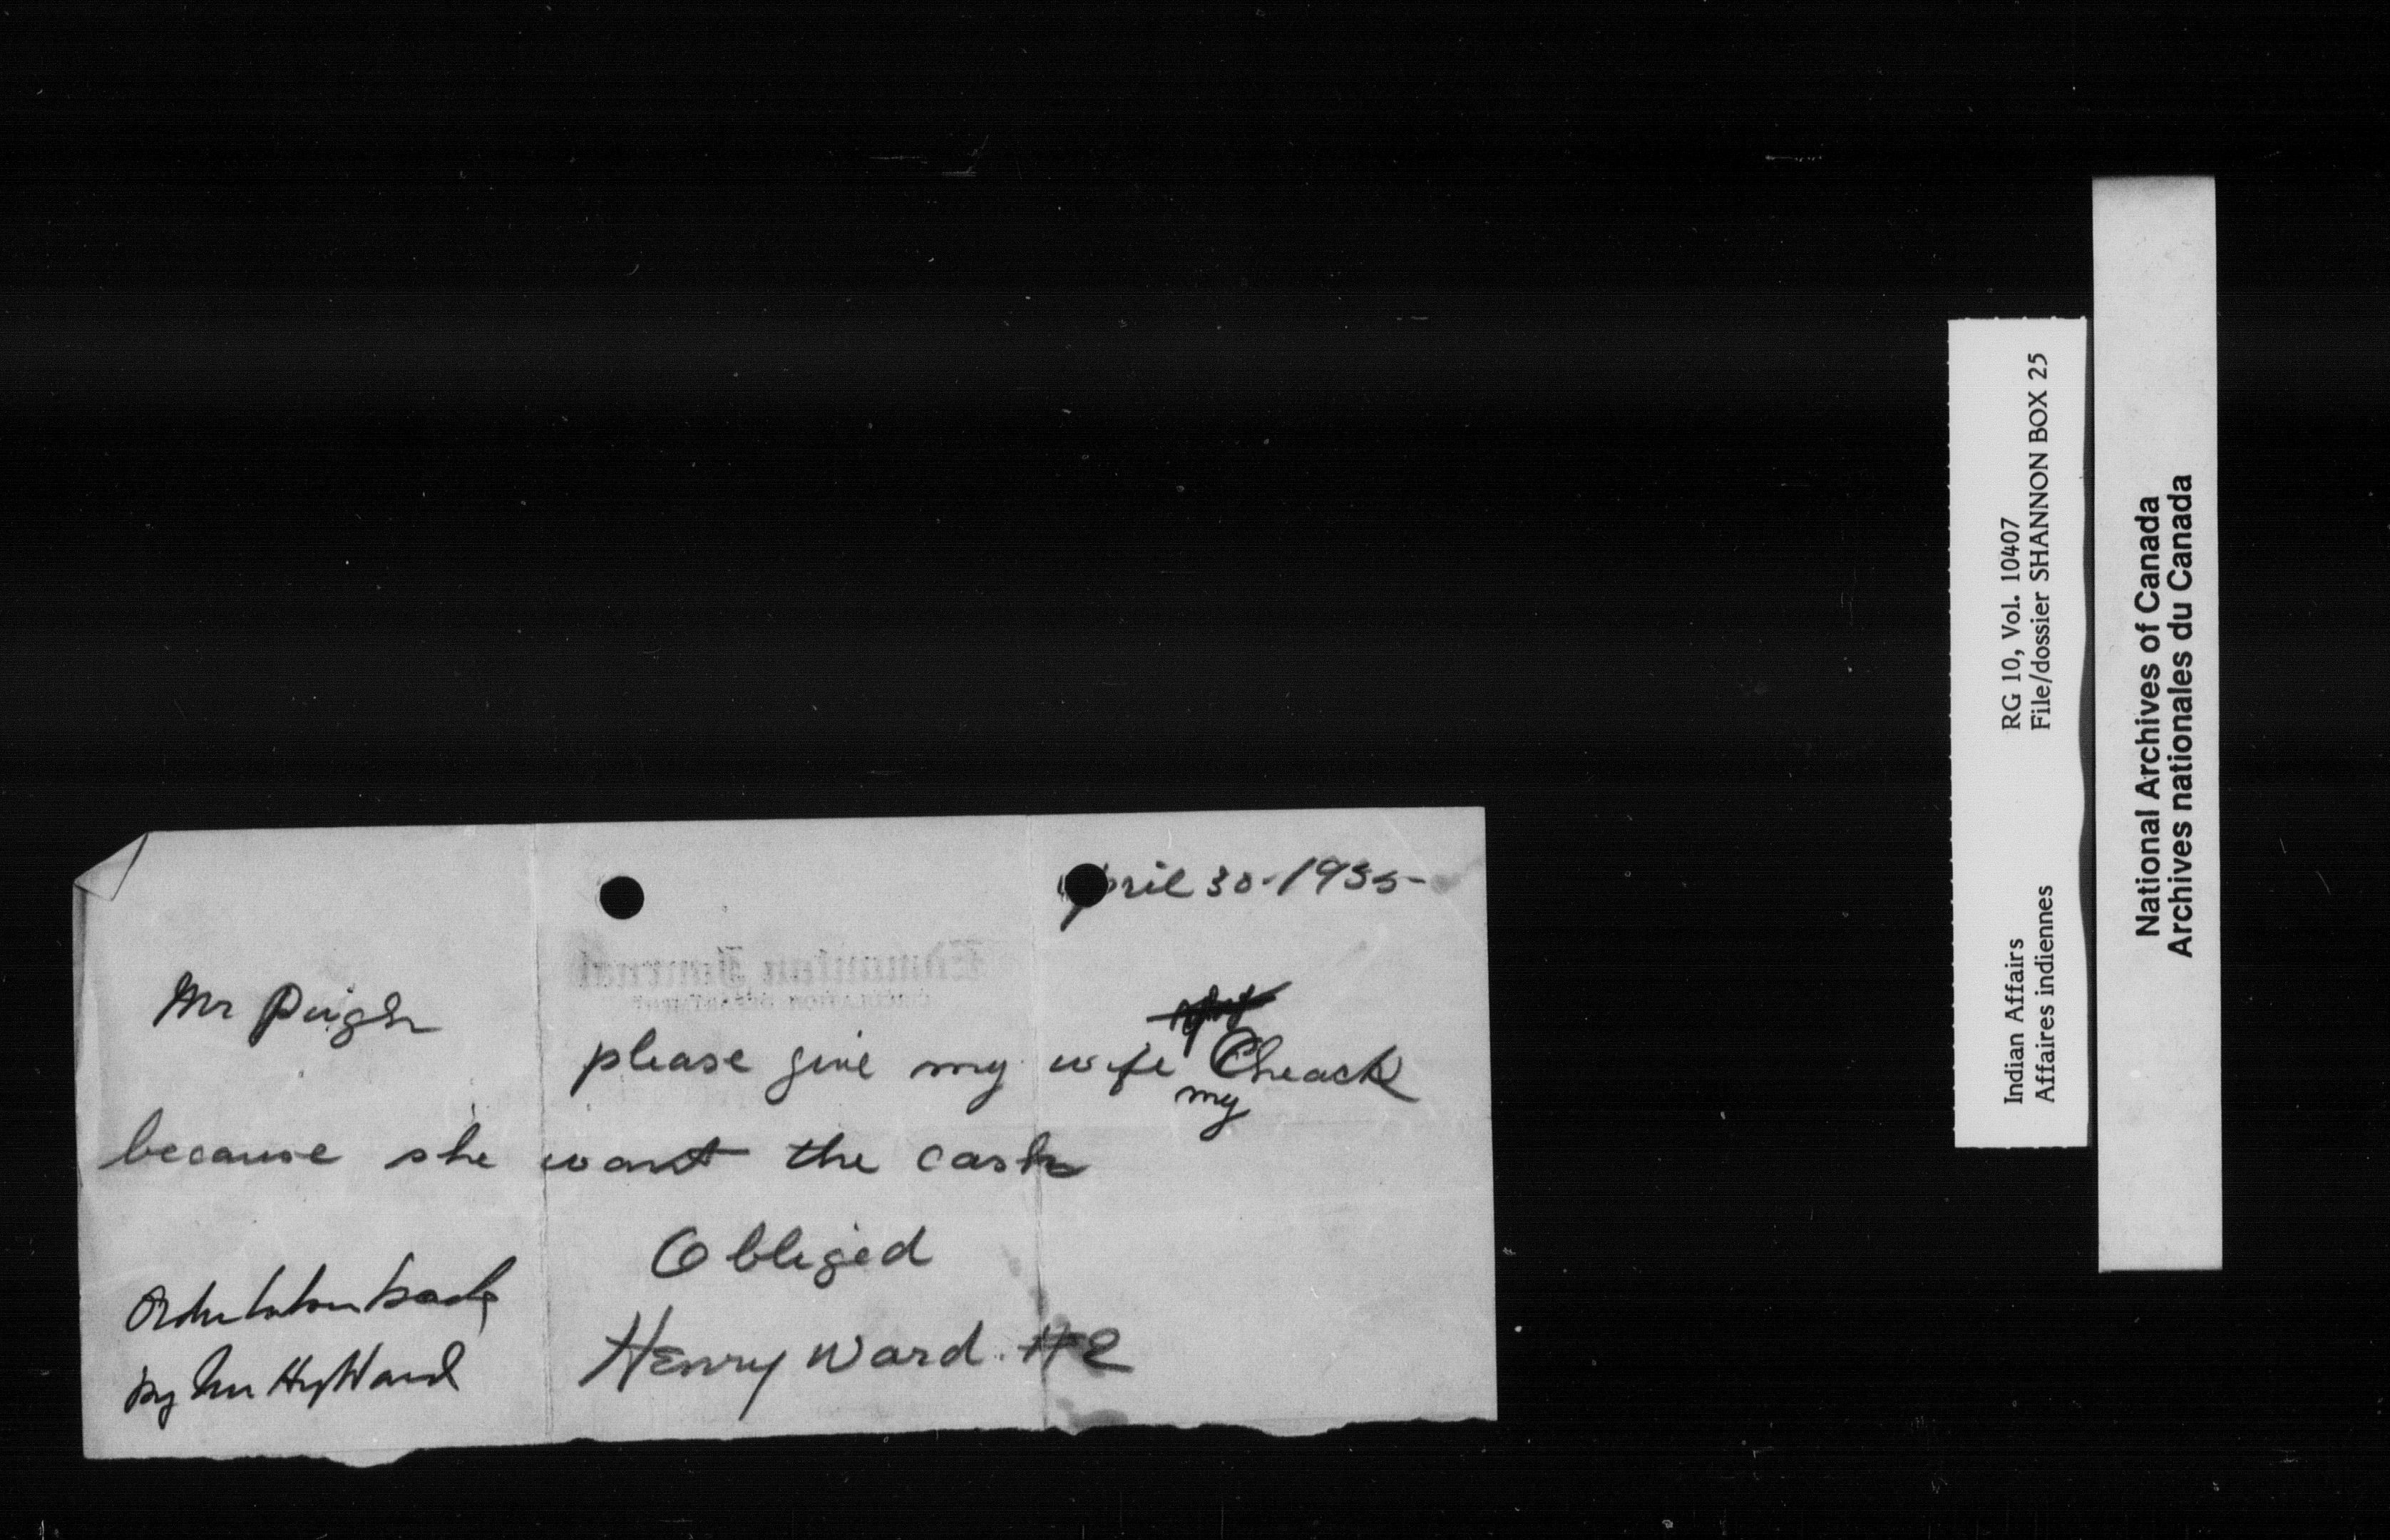 April 30-1935-
Mr Pugh
please give my wife my Cheack
because she want the cash
Obliged
Henry Ward. #2
by Mr Hy Ward
Indian Affairs RG 10, Vol. 10407
Affaires indiennes File/dossier SHANNON BOX 25
National Archives of Canada
Archives nationales du Canada